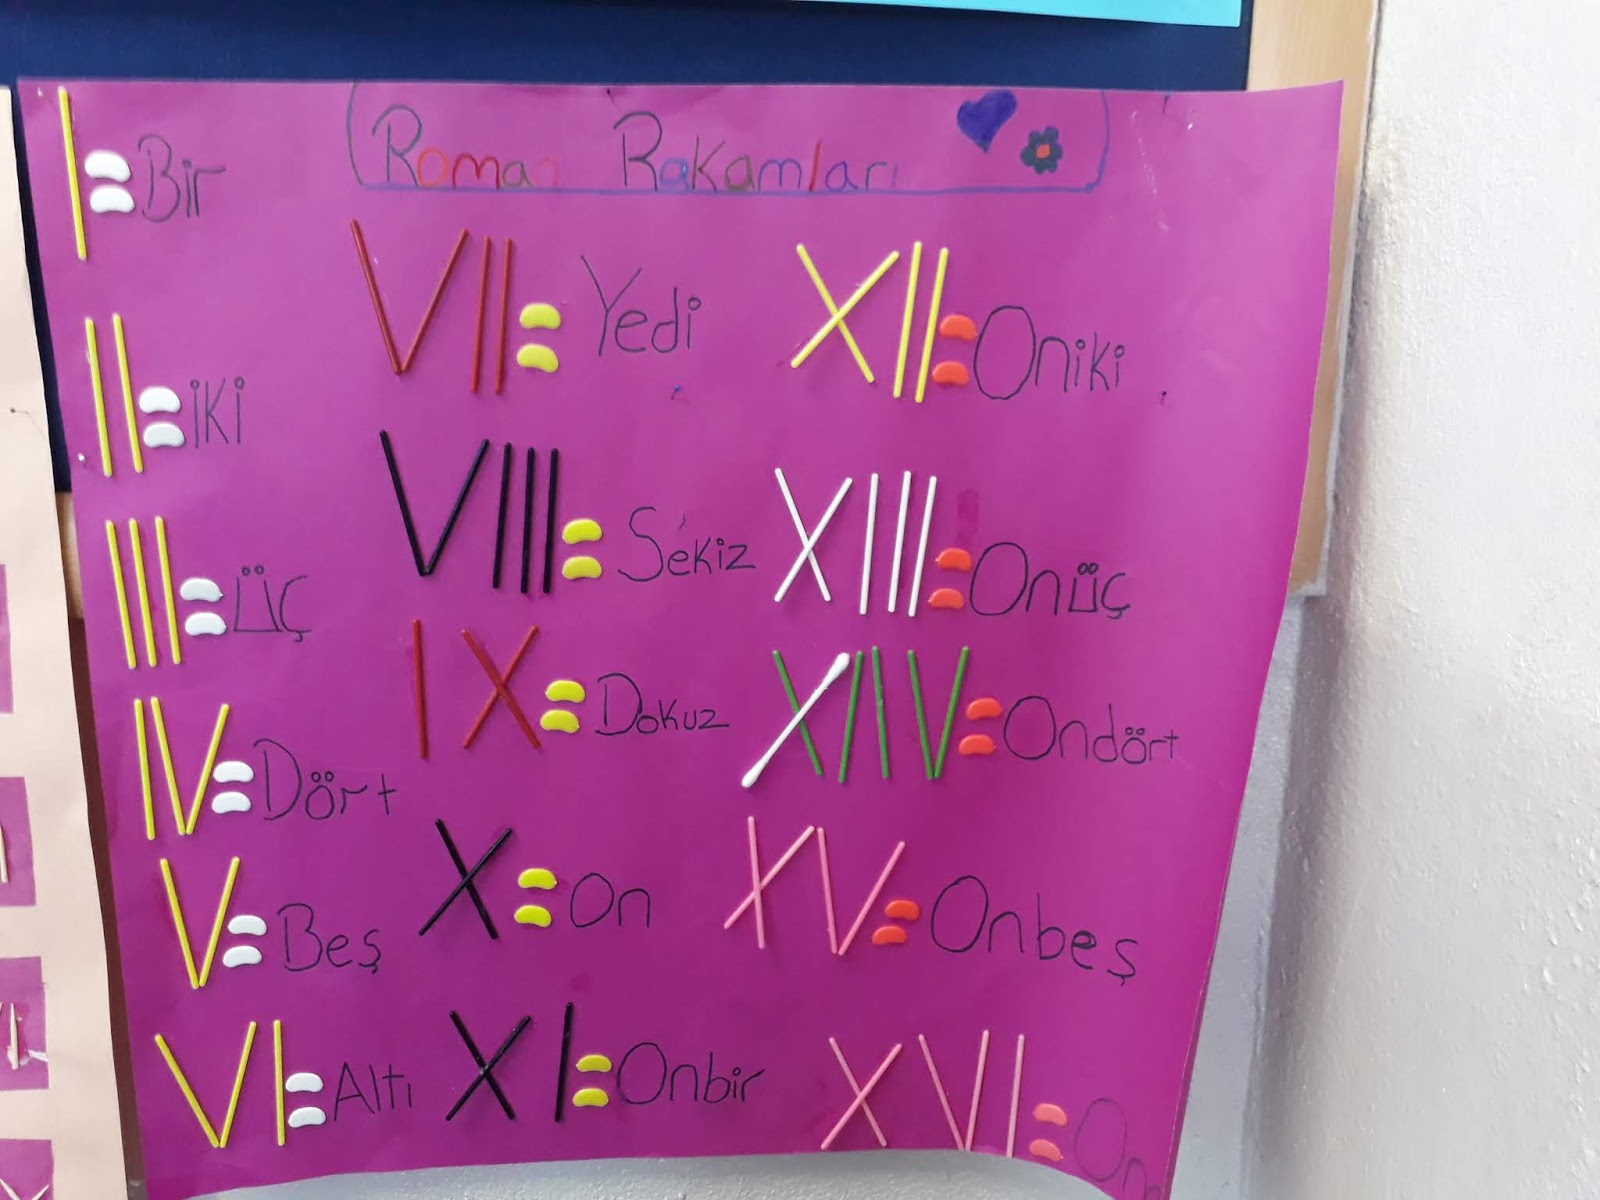 Roman Rakamları
I = Bir
II = iki
III = üç
IV = Dört
V = Beş
VI = Altı
VII = Yedi
VIII = Sekiz
IX = Dokuz
X = On
XI = Onbir
XII = Oniki
XIII = Onüç
XIIV = Ondört
XV = Onbeş
XVI = On